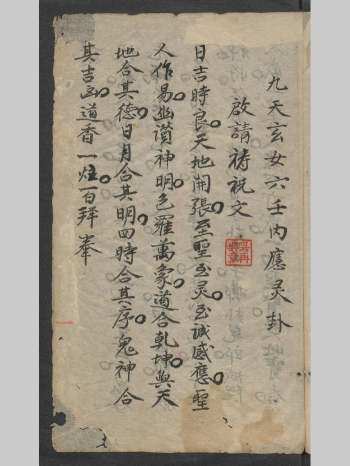 九天玄女六壬内應灵卦
啟請禱祝文
日吉時良天地開張至聖至灵至誠感應聖
人作易幽讚神明包羅萬象道合乾坤與天
地合其德日月合其明四時合其序鬼神合
其吉凶道香一炷百拜奉